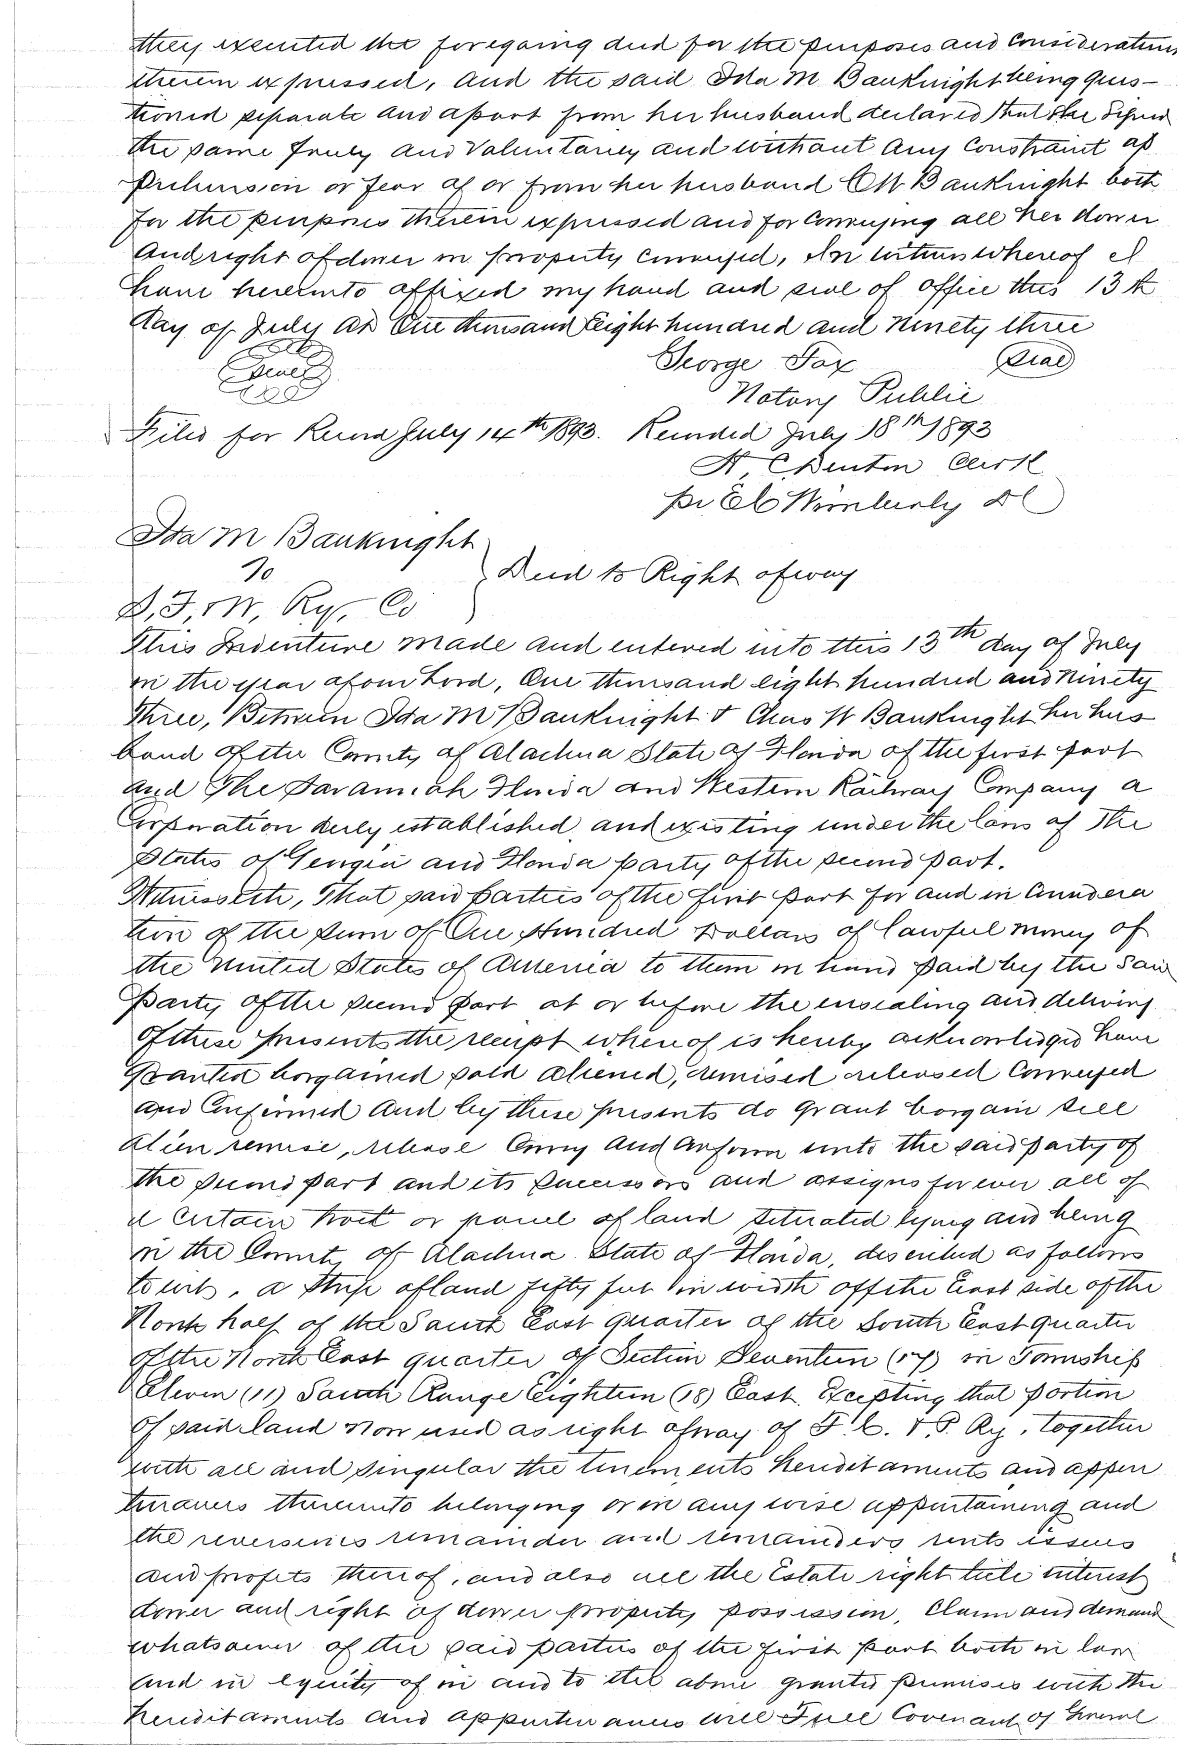 they executed the foregoing deed for the purposes and Consideration
therein expressed, And the said Ida M Bauknight being ques-
tioned separate and apart from her husband declared that she signed
the same freely and Voluntarily and without any Constraint ap
prehension or fear of or from her husband C W Bauknight both
for the purposes therein expressed and for Conveying all her dower
and right of dower in property Conveyed, In witness whereof I
have hereunto affixed my hand and seal of office this 13th
day of July AD One thousand Eight hundred and Ninety three
George Fox (Seal)
(Seal)
Notary Public
Filed for Record July 14th 1893. Recorded July 18th 1893
H. C. Denton Clerk
pr E C Wimberly DC
Ida M Bauknight
To
Deed to Right of way
S, F, & W, Ry, Co
This Indenture made and entered into this 13th day of July
in the year of our Lord, One thousand eight hundred and Ninety
three, Between Ida M Bauknight & Chas W Bauknight her hus
band of the County of Alachua State of Florida of the first part
and The Savannah Florida and Western Railway Company a
Corporation duly established and existing under the laws of The
States of Georgia and Florida party of the second part.
Witnesseth, That said parties of the first part for and in Considera
tion of the sum of One Hundred Dollars of lawful money of
the United States of America to them in hand paid by the said
party of the second part at or before the ensealing and delivery
of these presents the receipt whereof is hereby acknowledged have
Granted bargained sold aliened, remised released Conveyed
and Confirmed And by these presents do grant bargain sell
alien remise, release Convey and Confirm unto the said party of
the second part and its successors and assigns forever all of
a certain tract or parcel of land situated lying and being
in the County of Alachua State of Florida, described as follows
to wit, a strip of land fifty feet in width off the East side of the
North half of the South East quarter of the South East quarter
of the North East quarter of Section Seventeen (17) in Township
Eleven (11) South Range Eighteen (18) East. Excepting that portion
of said land now used as right of way of F. C. & P. Ry, together
with all and singular the tenements hereditaments and appur
tenances thereunto belonging or in any wise appertaining and
the reversions remainder and remainders rents issues
and profits thereof, and also all the Estate right title interest
dower and right of dower property possession, Claim and demand
whatsoever of the said parties of the first part both in law
and in equity of in and to the above granted premises with the
hereditaments and appurtenances will Full Covenant of General